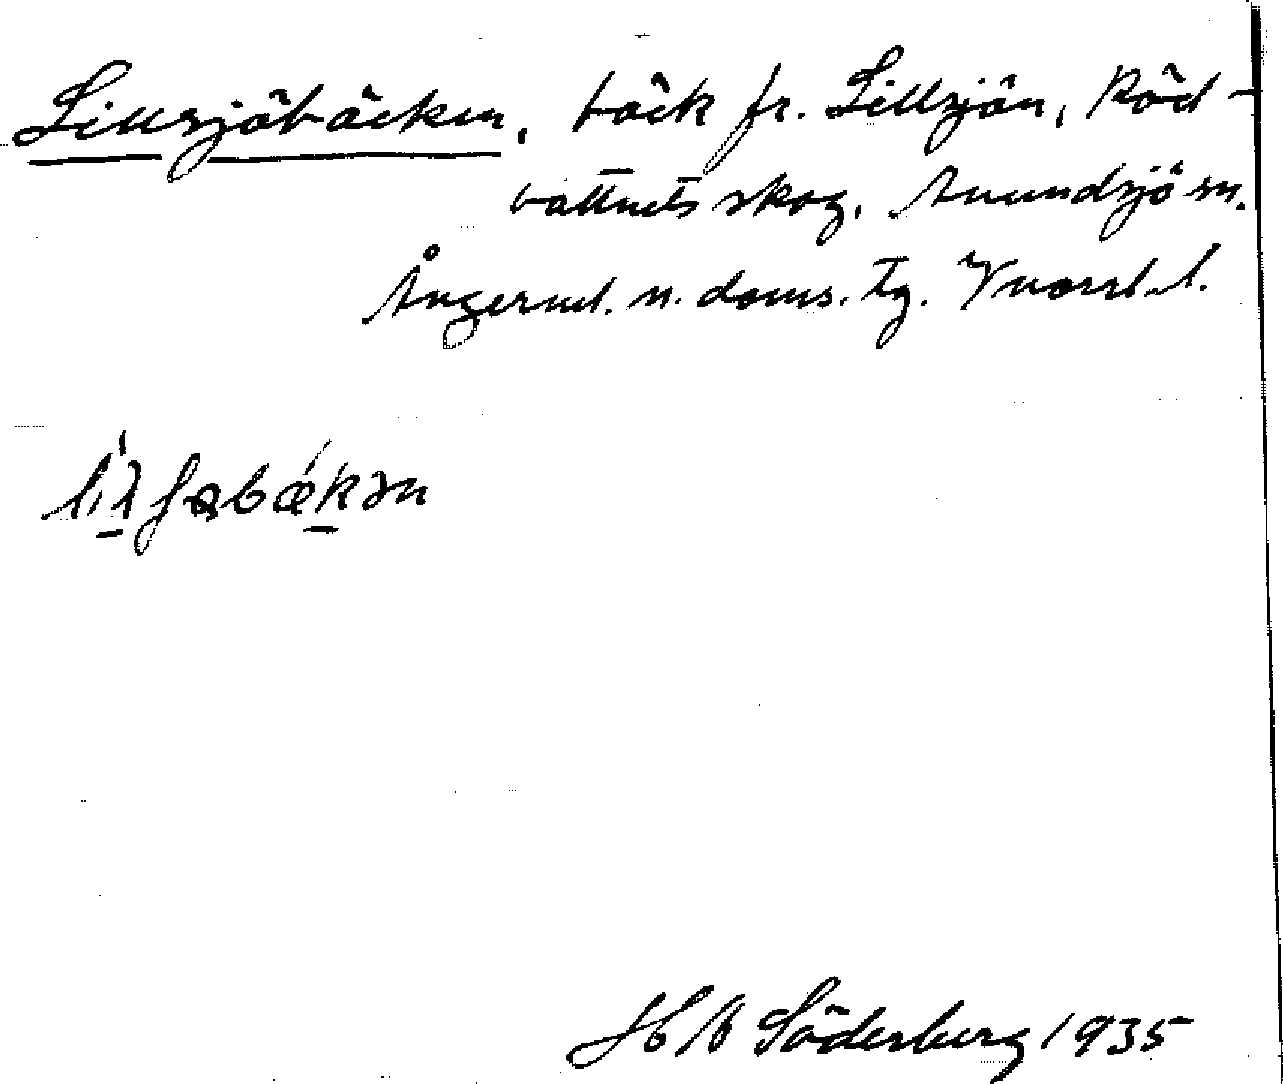 Lillsjöbäcken, bäck fr. Lillsjön, Röd-
vattnets skog, Anundsjö sn.
Ångerml. n. doms. tg. Vnorrl. l.
li'lʃɵbǽkən
H N Söderberg 1935